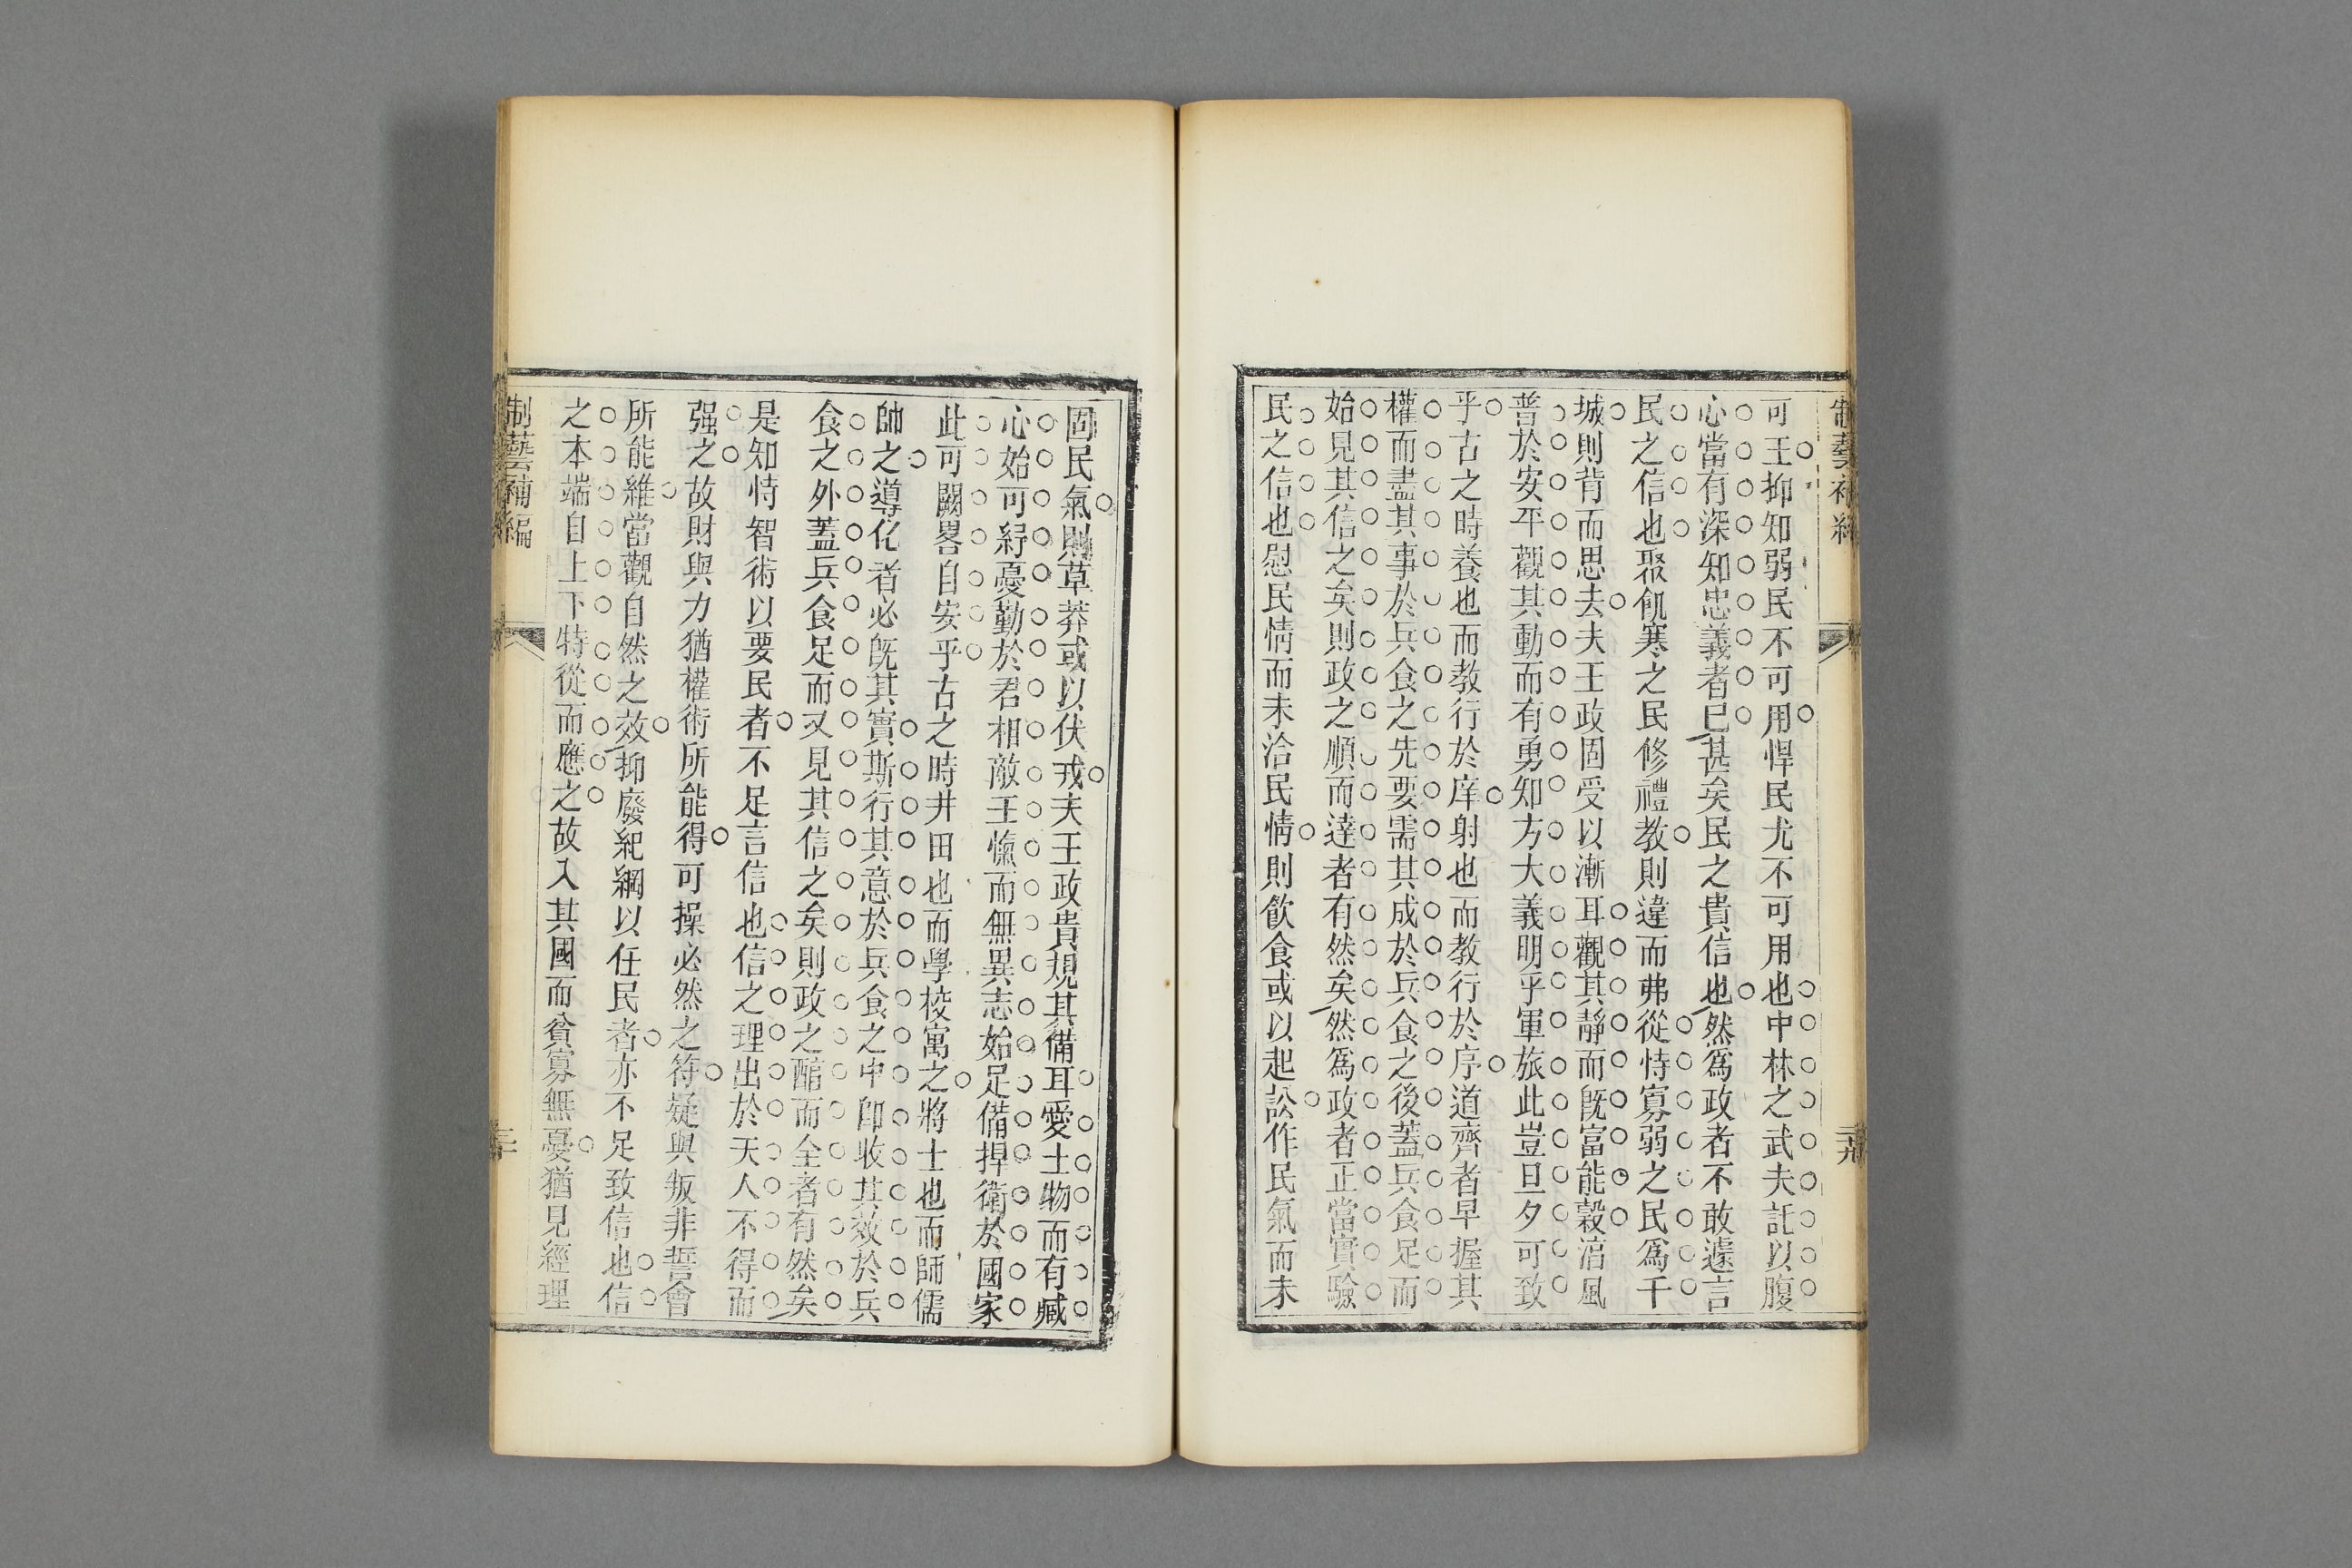 制藝補編
二十九
可王抑知弱民不可用悍民尤不可用也中林之武夫託以腹
心當有深知忠義者巳甚矣民之貴信也然爲政者不敢遽言
民之信也聚飢寒之民修禮教則違而弗從恃寡弱之民爲千
城則背而思去夫王政固受以漸耳觀其靜而旣富能穀湻風
普於安平觀其動而有勇知方大義明乎軍旅此豈旦夕可致
乎古之時養也而教行於庠射也而教行於序道齊者早握其
權而盡其事於兵食之先要需其成於兵食之後蓋兵食足而
始見其信之矣則政之順而達者有然矣然爲政者正當實驗
民之信也慰民情而未洽民情則飲食或以起訟作民氣而未
固民氣則草莽或以伏戎夫王政貴規其備耳愛土物而有臧
心始可紓憂勤於君相敵王愾而無異志始足備捍衛於國家
此可闕畧自安乎古之時井田也而學校寓之將士也而師儒
帥之導化者必旣其實斯行其意於兵食之中卽收其效於兵
食之外蓋兵食足而又見其信之矣則政之酣而全者有然矣
是知恃智術以要民者不足言信也信之理出於天人不得而
强之故財與力猶權術所能得可操必然之符疑與叛非誓會
所能維當觀自然之效抑廢紀綱以任民者亦不足致信也信
之本端自上下特從而應之故入其國而貧寡無憂猶見經理
制藝補編
三十